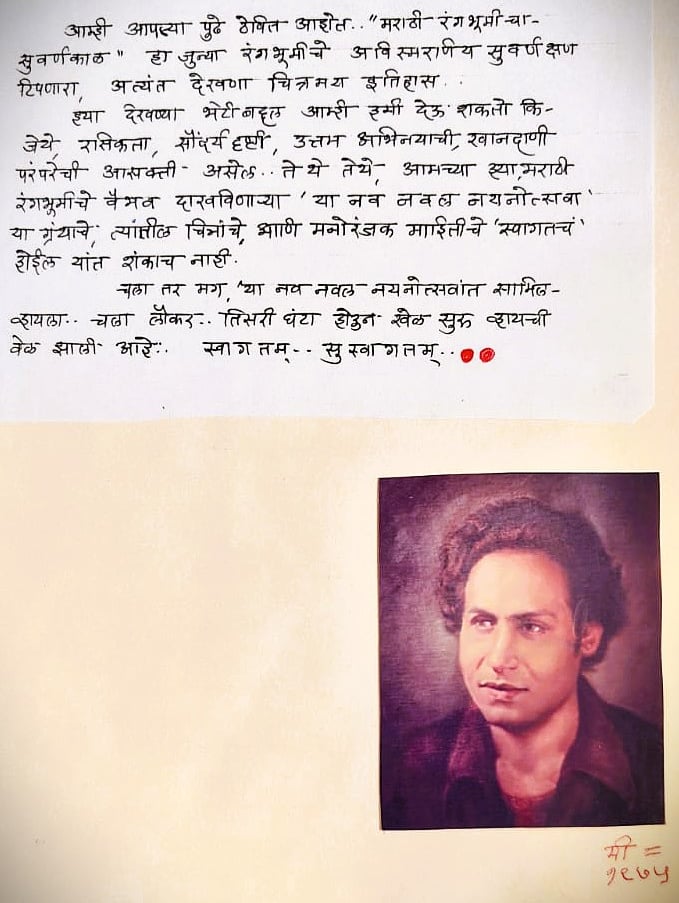 आम्ही आपल्या पुढे ठेवित आहोत.. "मराठी रंगभूमीचा-
सुवर्णकाळ" हा जुन्या रंगभूमीचे अविस्मरणीय सुवर्ण क्षण
टिपणारा, अत्यंत देखणा चित्रमय इतिहास..
ह्या देखण्या भेटीबद्दल आम्ही हमी देऊ शकतो कि-
जेथे, रसिकता, सौंदर्य दृष्टी, उत्तम अभिनयाची, खानदाणी
परंपरेची आसक्ती- असेल.. तेथे तेथे, आमच्या ह्या, मराठी
रंगभूमीचे वैभव दाखविणाऱ्या 'या नव नवल नयनोत्सवा'
या ग्रंथाचे, त्यांतील चित्रांचे, आणि मनोरंजक माहितीचे 'स्वागतचं'
होईल यांत शंकाच नाही.
चला तर मग, 'या नव नवल नयनोत्सवांत सामिल-
व्हायला.. चला लौकर.. तिसरी घंटा होऊन खेळ सुरू व्हायची
वेळ झाली आहे.. स्वागतम्.. सुस्वागतम्..
मी =
१९७५